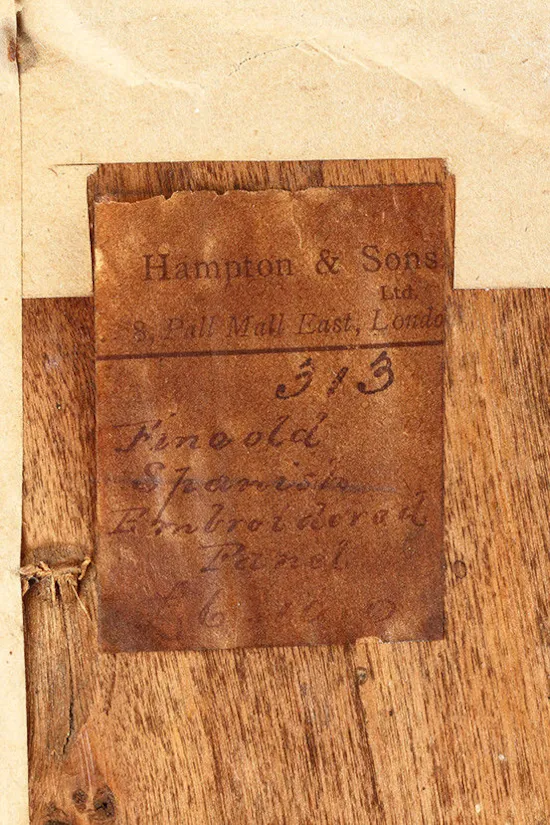 Hampton & Sons
Ltd.
8, Pall Mall East, Londo
313
Fine old
Spanish
Embroidered
Panel